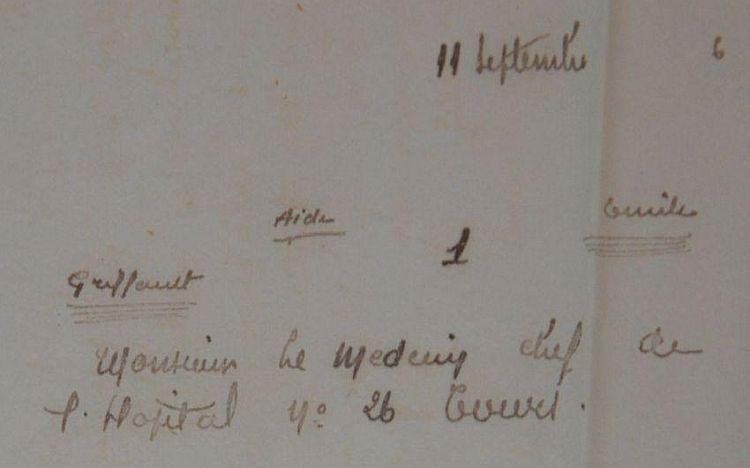 11 Septembre 6
Aide Emile
1
Griffault
Monsieur Le Medecin chef de
l. Hopital No 26 Tours.